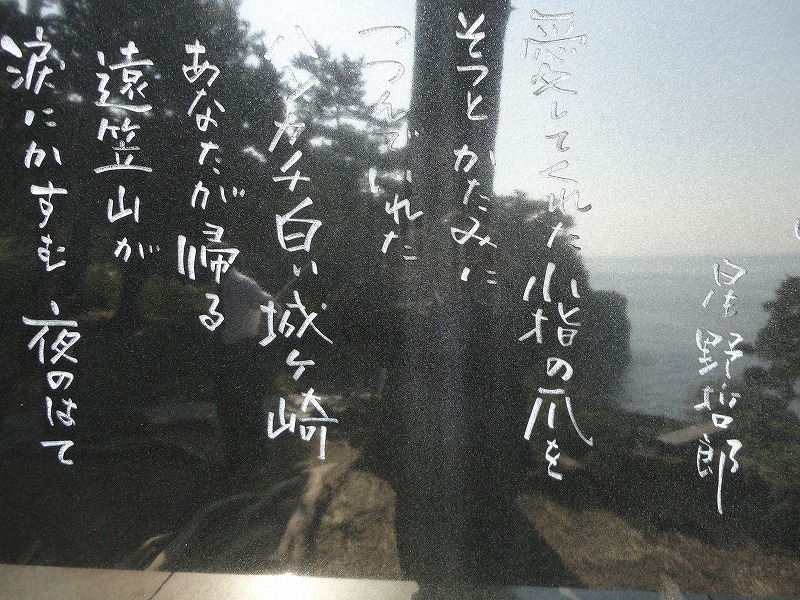 星野哲郎
愛してくれた小指の爪を
そっとかたみに
つつんでいれた
ハンカチ白い城ヶ崎
あなたが帰る
遠笠山が
涙にかすむ 夜のはて